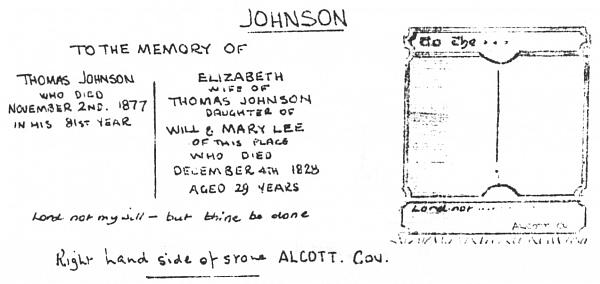 JOHNSON
TO THE MEMORY OF
THOMAS JOHNSON
WHO DIED
NOVEMBER 2ND. 1877
IN HIS 81ST YEAR
ELIZABETH
WIFE OF
THOMAS JOHNSON
DAUGHTER OF
WILL & MARY LEE
OF THIS PLACE
WHO DIED
DECEMBER 4TH 1828
AGED 29 YEARS
Lord not my will - but thine be done
Right hand side of stone ALCOTT. COV.
to the ...
Lord not .....
ALCOTT